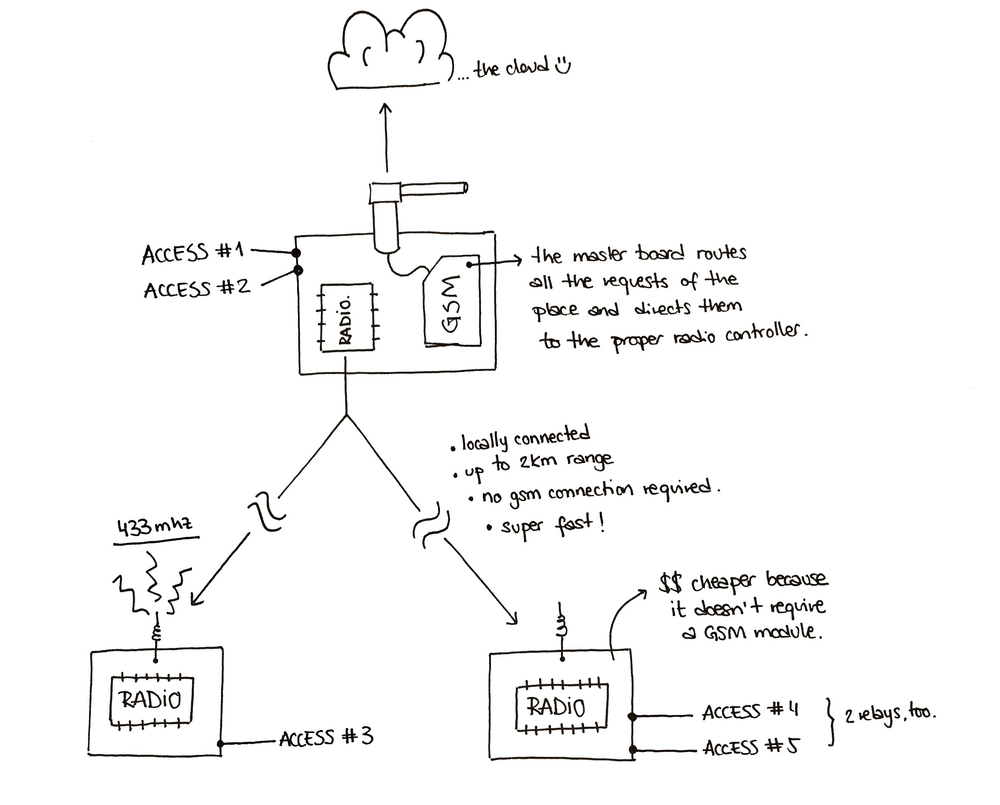 ... the cloud
ACCESS #1
ACCESS #2
RADIO.
GSM
the master board routes
all the requests of the
place and directs them
to the proper radio controller.
• locally connected
• up to 2km range
• no gsm connection required.
• super fast!
433mhz
$$ cheaper because
it doesn't require
a GSM module.
RADIO
ACCESS #3
RADIO
ACCESS #4
ACCESS #5
2 relays, too.